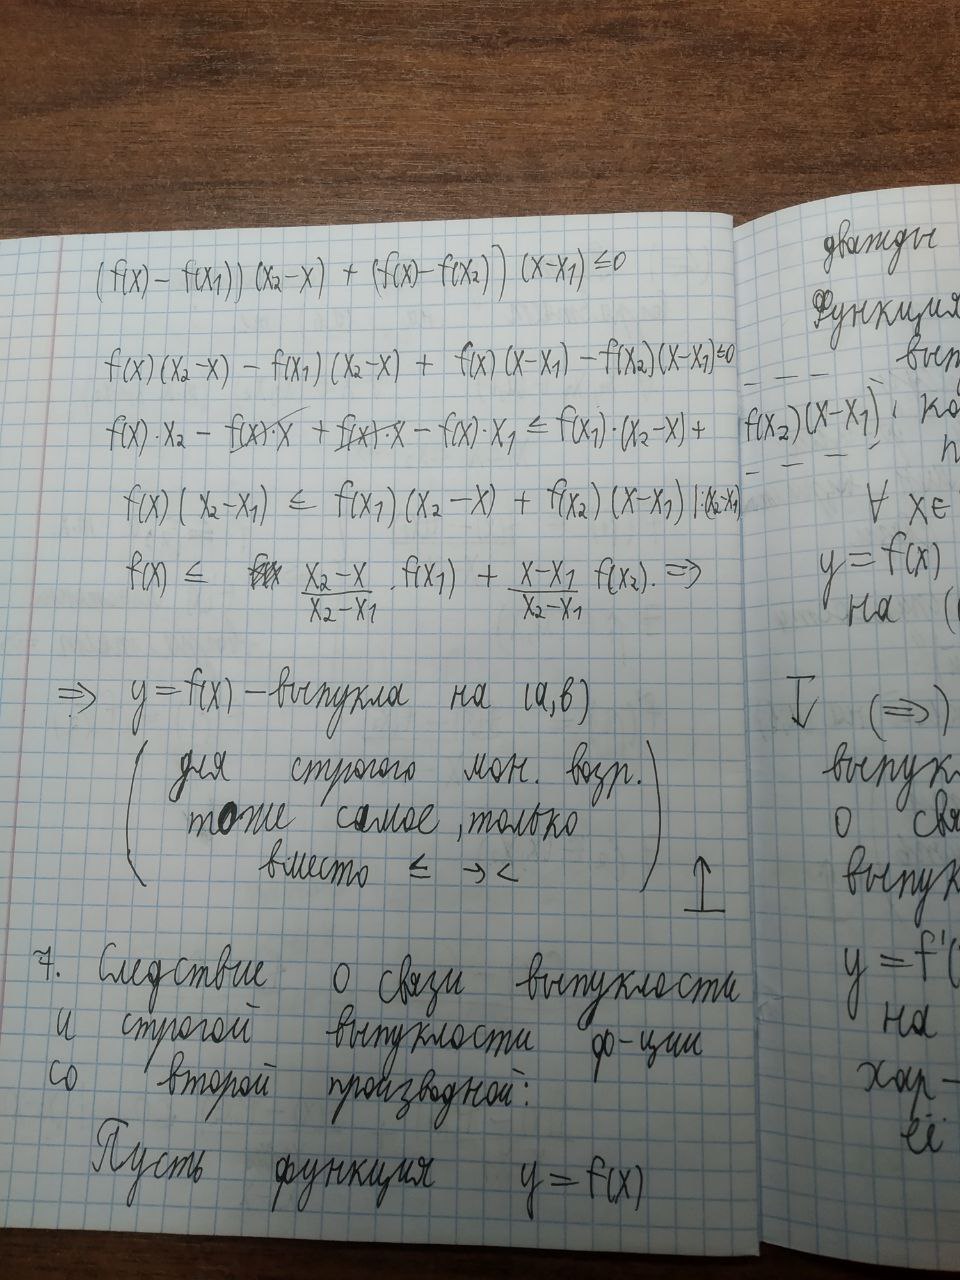 (f(x) - f(x₁))(x₂-x) + (f(x) - f(x₂))(x-x₁) ≤ 0
f(x)(x₂-x) - f(x₁)(x₂-x) + f(x)(x-x₁) - f(x₂)(x-x₁) ≤ 0
f(x)·x₂ - f(x)·x + f(x)·x - f(x)·x₁ ≤ f(x₁)·(x₂-x) + f(x₂)(x-x₁)
f(x)(x₂-x₁) ≤ f(x₁)(x₂-x) + f(x₂)(x-x₁) |:(x₂-x₁)
f(x) ≤ (x₂-x)/(x₂-x₁) · f(x₁) + (x-x₁)/(x₂-x₁) f(x₂). ⇒
⇒ y = f(x) - выпукла на (a,b)
(для строгого мон. возр.
тоже самое, только
вместо ≤ → <)
↑
7. Следствие о связи выпуклости
и строгой выпуклости ф-ции
со второй производной:
Пусть функция y = f(x)
дважды
Функция
вып
ко
п
∀ x∈
y = f(x)
на (
↓ (⇒)
выпук
о свя
выпук
y = f'(
на
хар-
её